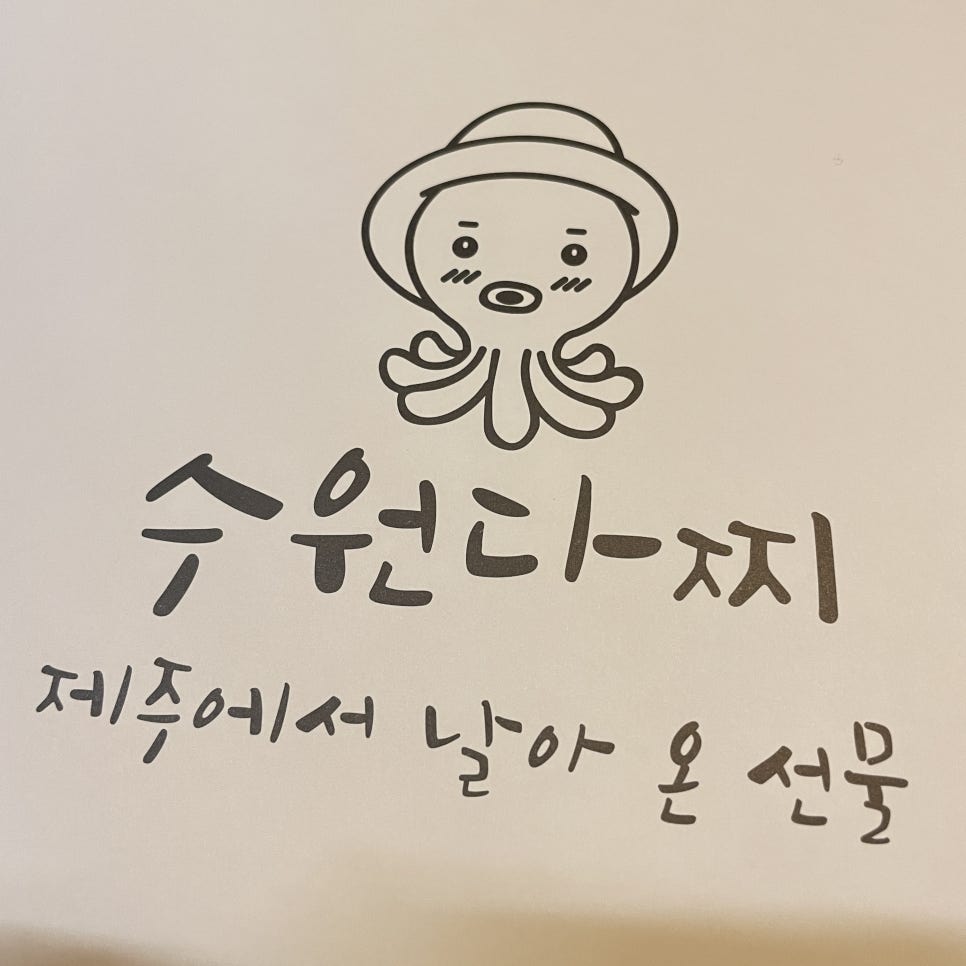 수원다찌
제주에서 날아 온 선물